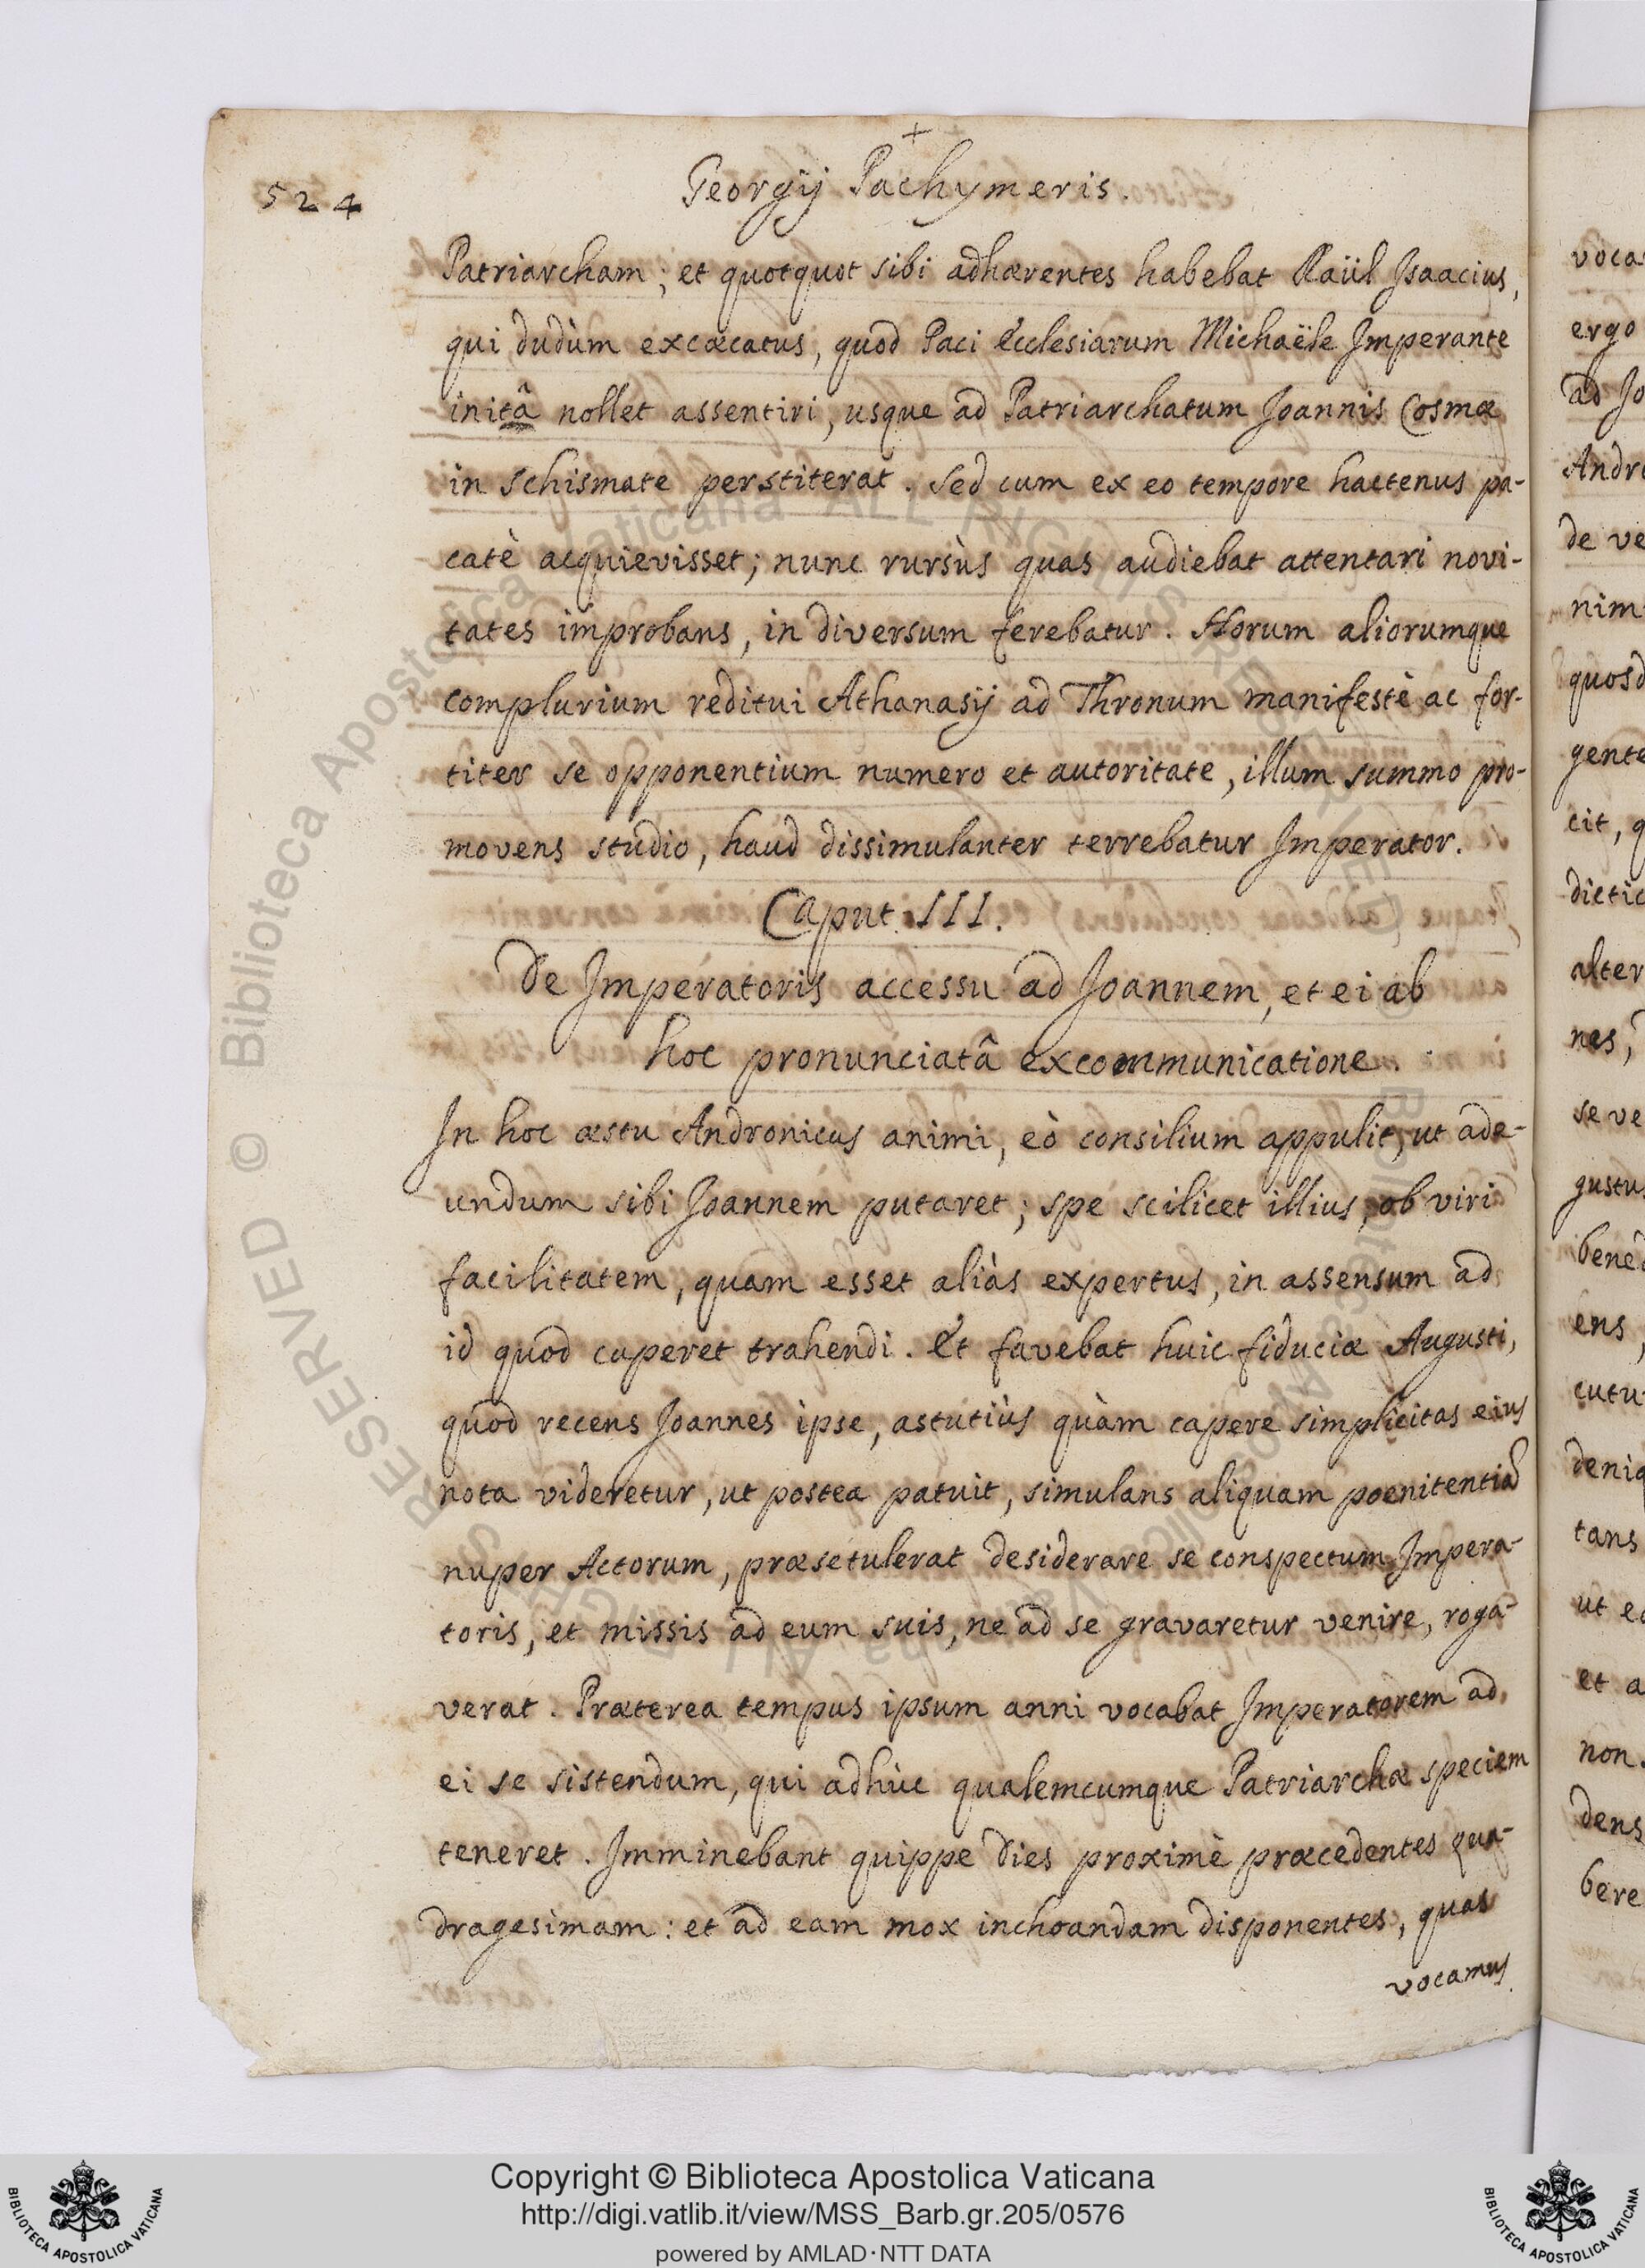 524
Georgÿ Pachymeris.
Patriarcham; et quotquot sibi adhærentes habebat Raül Isaacius,
qui dudùm excæcatus, quod Paci Ecclesiarum Michaële Imperante
initâ nollet assentiri, usque ad Patriarchatum Joannis Cosmæ
in schismate perstiterat. Sed cum ex eo tempore hactenus pa-
catè acquievisset; nunc rursùs quas audiebat attentari novi-
tates improbans, in diversum ferebatur. Horum aliorumque
complurium reditui Athanasÿ ad Thronum manifestè ac for-
titer se opponentium numero et autoritate, illum summo pro-
movens studio, haud dissimulanter terrebatur Imperator.
Caput III.
De Imperatoris accessu ad Joannem, et ei ab
hoc pronunciatâ excommunicatione.
In hoc æstu Andronicus animi, eò consilium appulit, ut ade-
undum sibi Joannem putaret; spe scilicet illius, ob viri
facilitatem, quam esset aliàs expertus, in assensum ad
id quod cuperet trahendi. Et favebat huic fiduciæ Augusti,
quod recens Joannes ipse, astutiùs quàm capere simplicitas eius
nota videretur, ut postea patuit, simulans aliquam poenitentiã
nuper Actorum, præsetulerat desiderare se conspectum Impera-
toris, et missis ad eum suis, ne ad se gravaretur venire, roga-
verat. Præterea tempus ipsum anni vocabat Imperatorem ad
ei se sistendum, qui adhuc qualemcumque Patriarchæ speciem
teneret. Imminebant quippe dies proximè præcedentes qua-
dragesimam: et ad eam mox inchoandam disponentes, quas
vocamus
voca
ergo
ad Jo
Andr
de ve
nim
quosd
gente
cit, q
dictio
alter
nes,
se ve
gustu
bened
ens,
cutu
deniq
tans
ut e
et a
non
dens
bere
© Biblioteca Apostolica Vaticana ALL RIGHTS RESERVED
© Biblioteca Apostolica Vaticana ALL RIGHTS RESERVED
Copyright © Biblioteca Apostolica Vaticana
http://digi.vatlib.it/view/MSS_Barb.gr.205/0576
powered by AMLAD·NTT DATA
BIBLIOTECA APOSTOLICA VATICANA
BIBLIOTECA APOSTOLICA VATICANA